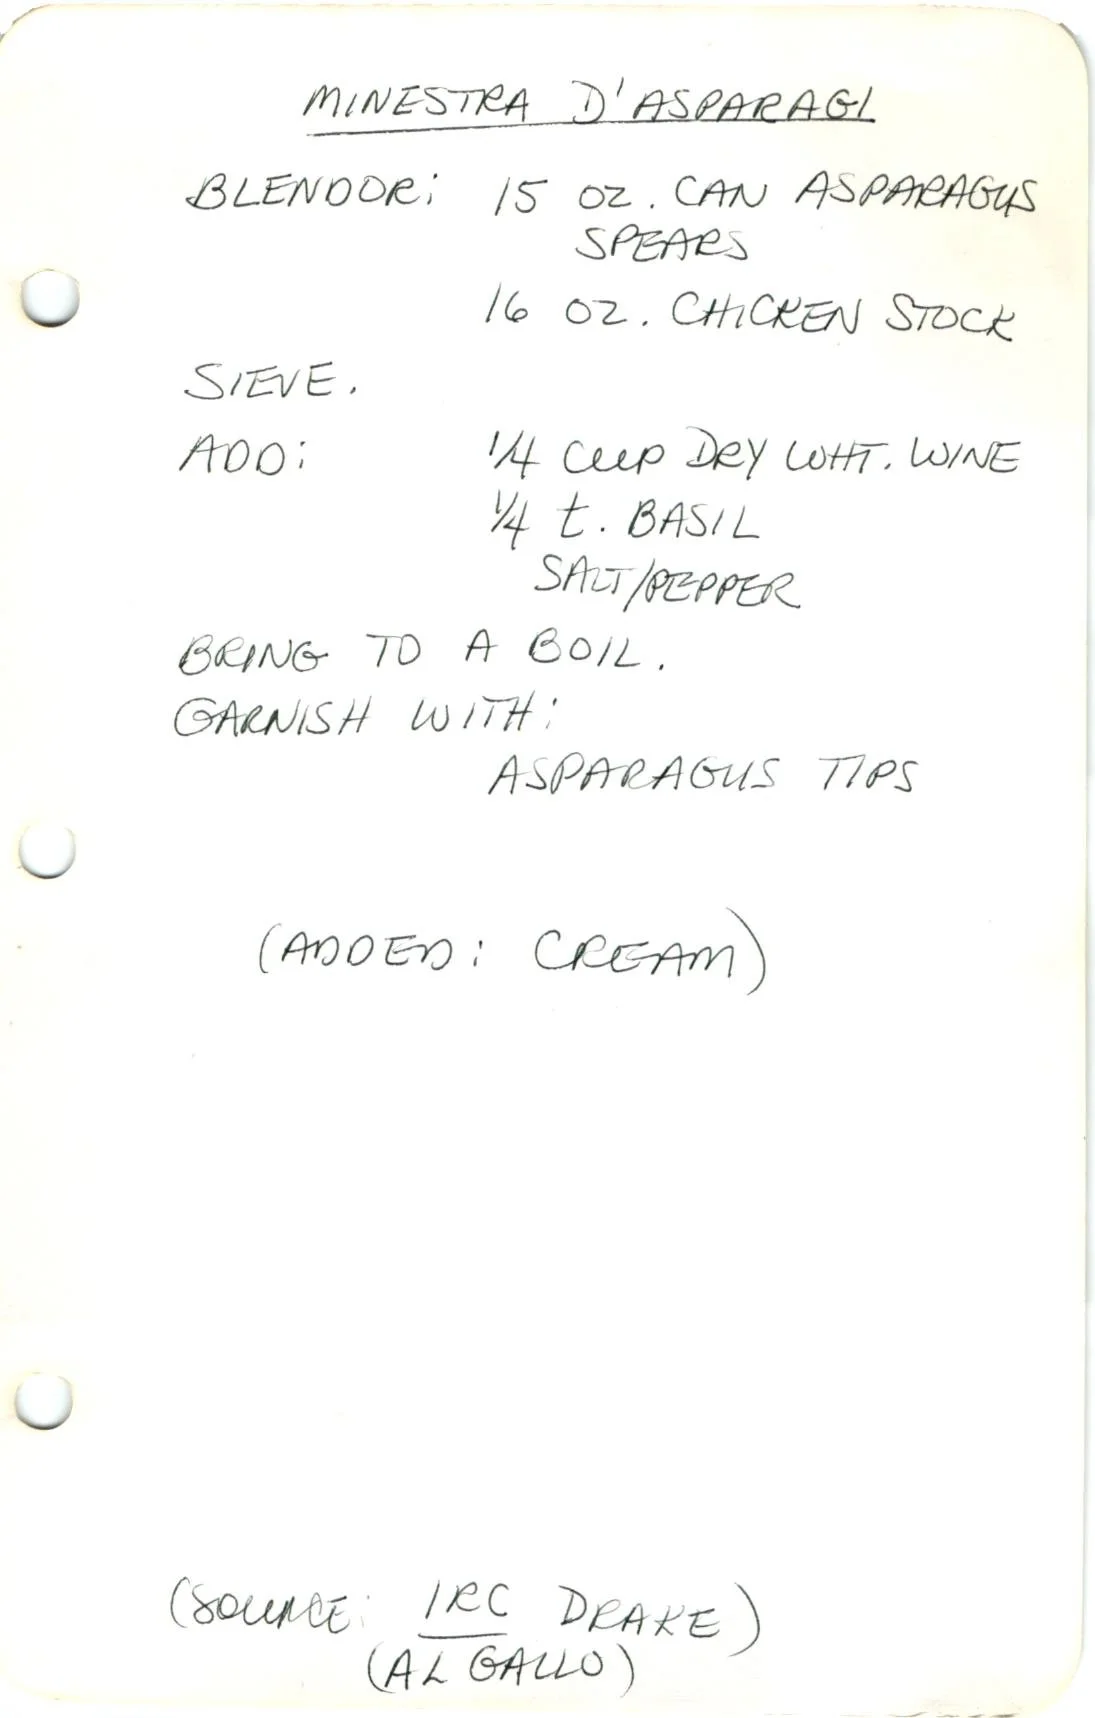 MINESTRA D'ASPARAGI
BLENDOR: 15 OZ. CAN ASPARAGUS
SPEARS
16 OZ. CHICKEN STOCK
SIEVE.
ADD: 1/4 CUP DRY WHT. WINE
1/4 t. BASIL
SALT/PEPPER
BRING TO A BOIL.
GARNISH WITH:
ASPARAGUS TIPS
(ADDED: CREAM)
(SOURCE: IRC DRAKE)
(AL GALLO)